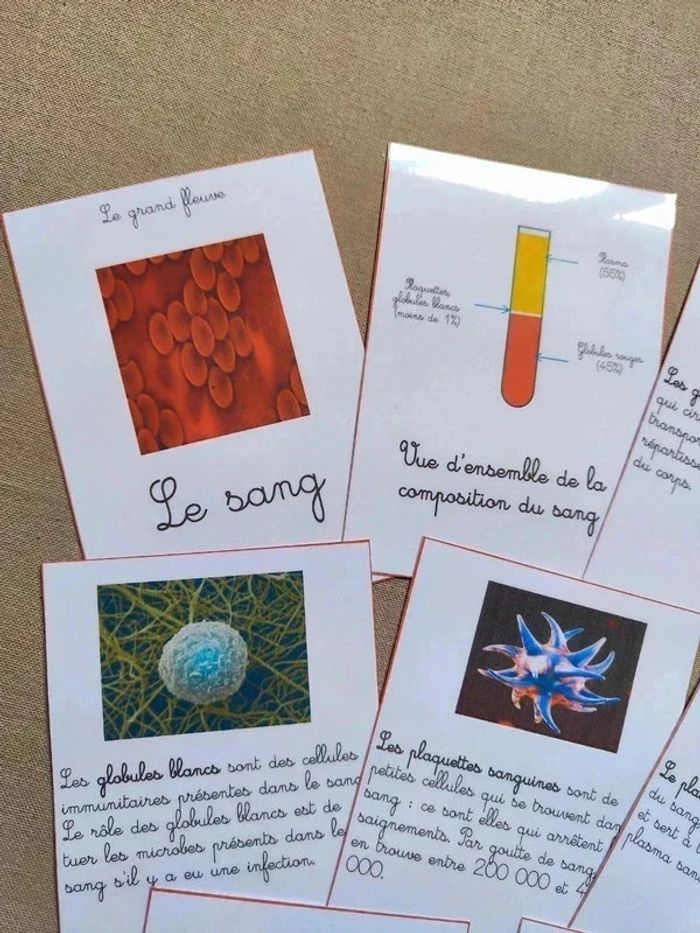 Le grand fleuve
Le sang
Plasma
(55%)
Plaquettes
globules blancs
(moins de 1%)
Globules rouges
(45%)
Vue d'ensemble de la
composition du sang
Les g
qui cir
transpor
répartiss
du corps.
Les globules blancs sont des cellules
immunitaires présentes dans le sang
Le rôle des globules blancs est de
tuer les microbes présents dans le
sang s'il y a eu une infection.
Les plaquettes sanguines sont de
petites cellules qui se trouvent dan
sang : ce sont elles qui arrêtent
saignements. Par goutte de sang
en trouve entre 200 000 et 4
000.
Le pla
du sang
et sert à
plasma san